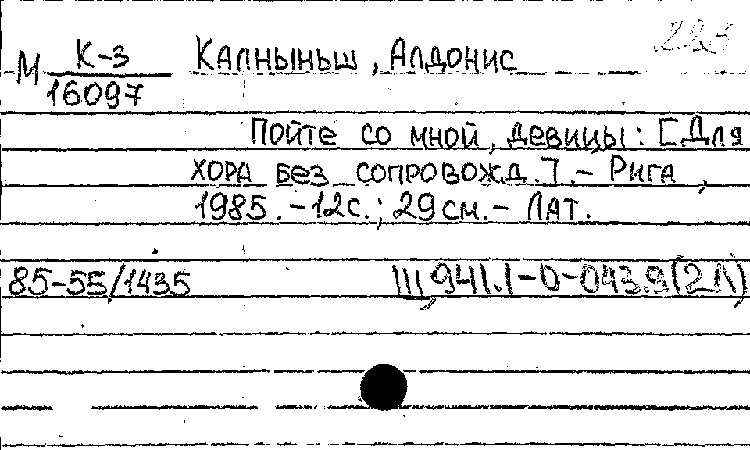 223
М К-3 Калныньш, Алдонис
16097
Пойте со мной, девицы: [Для
хора без сопровожд.].- Рига,
1985.-12с.; 29см.- Лат.
85-55/1435 Щ941.1-0-043.9(2Л)